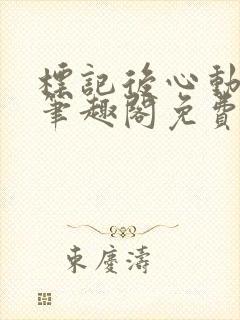 標記後心動
筆趣閣免費
東慶濤